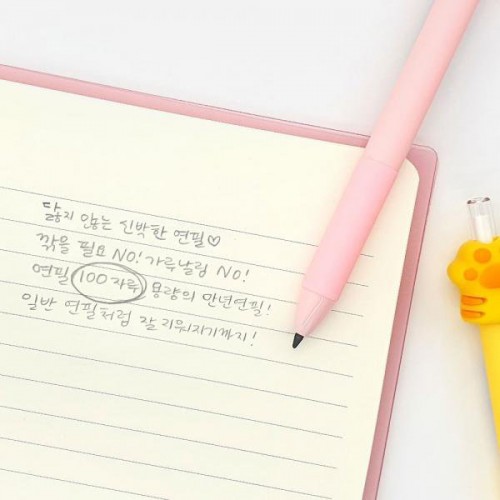 닳지 않는 신박한 연필♡
깎을 필요 NO! 가루날림 NO!
연필 100자루 용량의 만년연필!
일반 연필처럼 잘 지워지기까지!